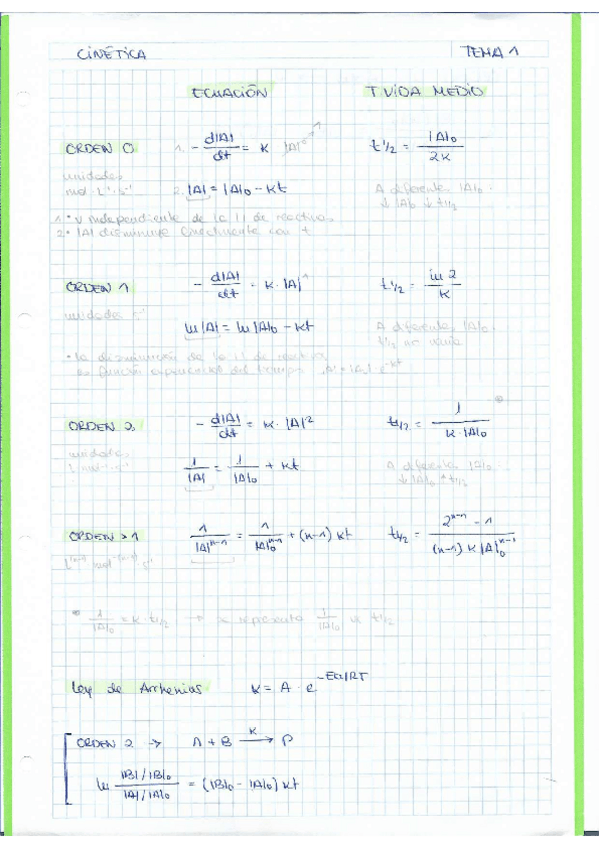 CINÉTICA TEMA 1
ECUACIÓN T VIDA MEDIO
ORDEN 0 1. - d|A|/dt = K |A|⁰ t½ = |A|₀/2K
unidades
mol·L⁻¹·s⁻¹ 2. |A| = |A|₀ - Kt A diferente |A|₀:
↓ |A|₀ ↓ t½
1 • v independiente de la | | de reactivo.
2 • |A| disminuye linealmente con t
ORDEN 1 - d|A|/dt = K·|A|¹ t½ = ln 2/K
unidades s⁻¹ ln|A| = ln|A|₀ - Kt A diferente |A|₀:
t½ no varía
• la disminución de la | | de reactivo
es función exponencial del tiempo |A| = |A|₀ e⁻ᴷᵗ
ORDEN 2 - d|A|/dt = K·|A|² t½ = 1/K·|A|₀
unidades
1/|A| = 1/|A|₀ + Kt A diferente |A|₀:
↓ |A|₀ ↑ t½
ORDEN >1 1/|A|ⁿ⁻¹ = 1/|A|₀ⁿ⁻¹ + (n-1) Kt t½ = (2ⁿ⁻¹ - 1)/((n-1) K |A|₀ⁿ⁻¹)
1/|A|₀ = K·t½ → se representa 1/|A|₀ vs t½
Ley de Arrhenius K = A · e^(-Ea/RT)
ORDEN 2 → A + B →(K) P
ln (|B|/|B|₀)/(|A|/|A|₀) = (|B|₀ - |A|₀) Kt